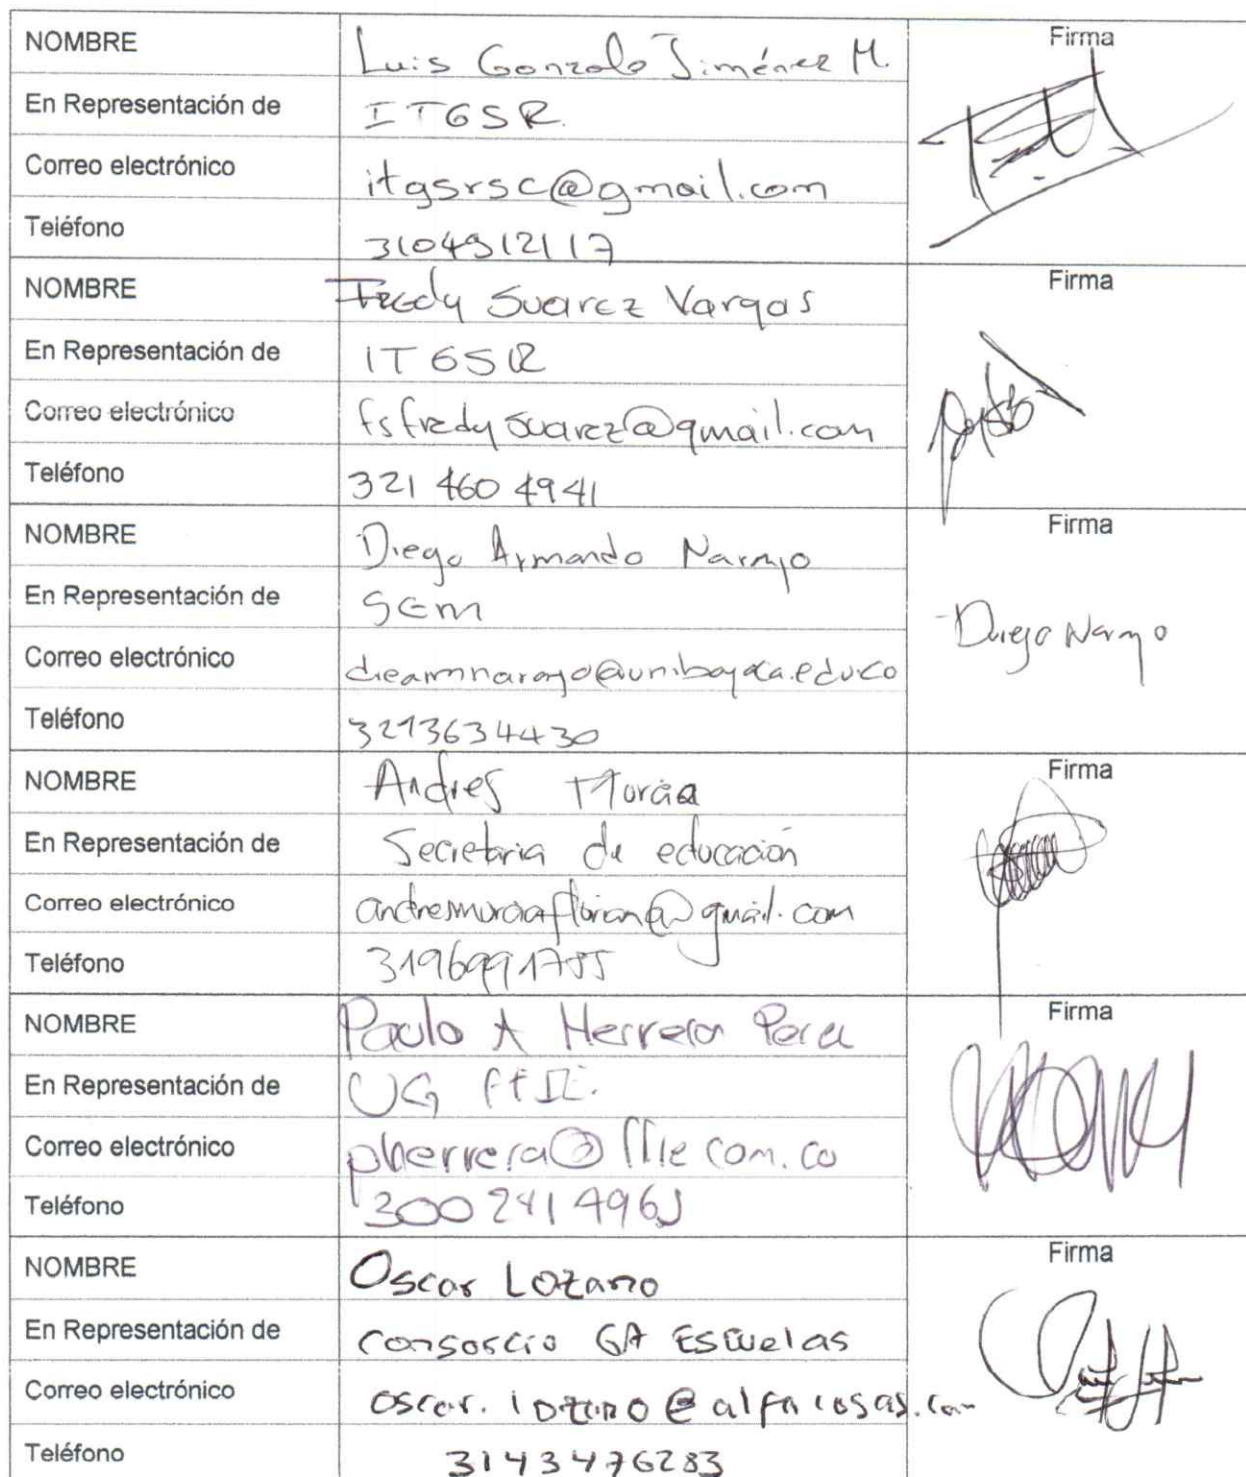 NOMBRE Luis Gonzalo Jiménez M. Firma
En Representación de ITGSR.
Correo electrónico itgsrsc@gmail.com
Teléfono 3104912117
NOMBRE Fredy Suarez Vargas Firma
En Representación de ITGSR
Correo electrónico fsfredysuarez@gmail.com
Teléfono 321 460 4941
NOMBRE Diego Armando Naranjo Firma
En Representación de SEM
Correo electrónico dieamnaranjo@uniboyaca.edu.co Diego Naranjo
Teléfono 3213634430
NOMBRE Andres Murcia Firma
En Representación de Secretaria de educación
Correo electrónico andresmurciaflorian@gmail.com
Teléfono
NOMBRE Paulo A Herrera Firma
En Representación de UG FFIE.
Correo electrónico pherrera@ffie.com.co
Teléfono 300 241 4965
NOMBRE Oscar Lozano Firma
En Representación de Consorcio GA Escuelas
Correo electrónico oscar.lozano@alfacosas.com
Teléfono 3143476283